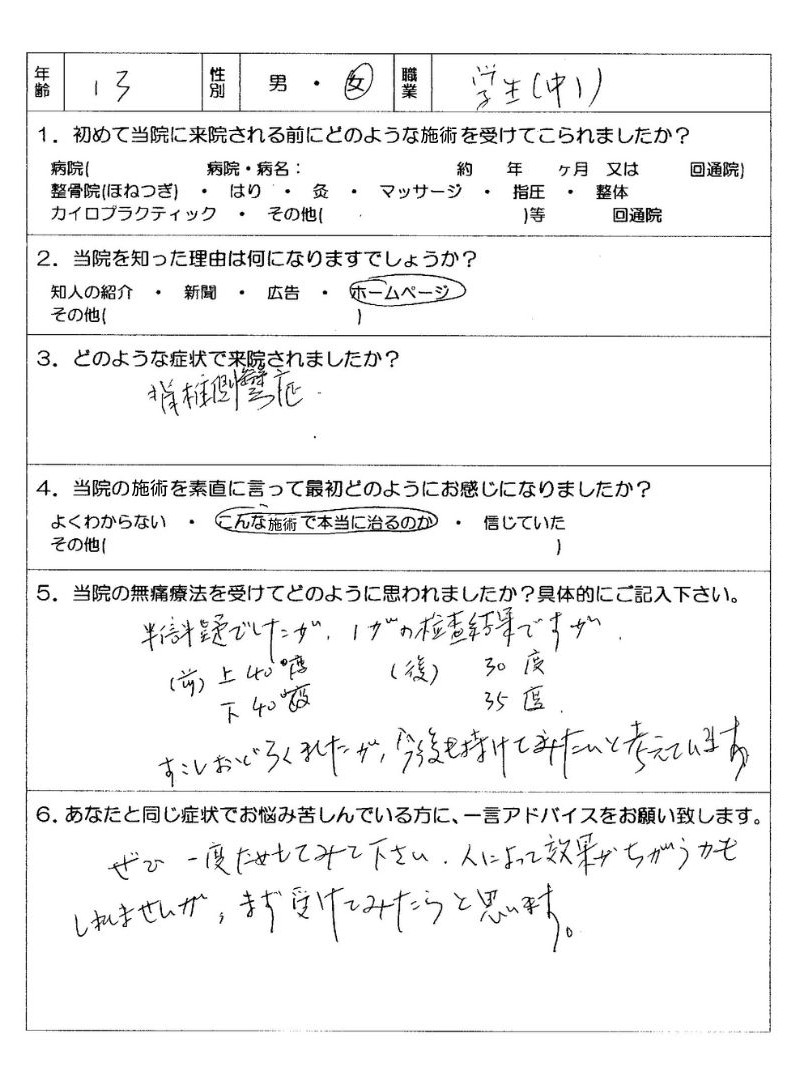 年齢 13 性別 男 ・ 女 職業 学生(中1)
1. 初めて当院に来院される前にどのような施術を受けてこられましたか?
病院( 病院・病名: 約 年 ヶ月 又は 回通院)
整骨院(ほねつぎ) ・ はり ・ 灸 ・ マッサージ ・ 指圧 ・ 整体
カイロプラクティック ・ その他( )等 回通院
2. 当院を知った理由は何になりますでしょうか?
知人の紹介 ・ 新聞 ・ 広告 ・ ホームページ
その他( )
3. どのような症状で来院されましたか?
脊椎側彎症.
4. 当院の施術を素直に言って最初どのようにお感じになりましたか?
よくわからない ・ こんな施術で本当に治るのか ・ 信じていた
その他( )
5. 当院の無痛療法を受けてどのように思われましたか?具体的にご記入下さい。
半信半疑でしたが、1が の検査結果ですが、
(前) 上40°度 (後) 30度
下40°度 35度.
すこしおどろくましたが, 今後も持けてみたいと考えています
6. あなたと同じ症状でお悩み苦しんでいる方に、一言アドバイスをお願い致します。
ぜひ 一度ためしてみて下さい. 人によって効果がちがうかも
しれませんが, まず受けてみたらと思います。